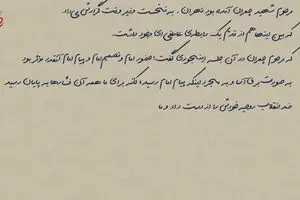 مرحوم شهید چمران آمده بود تهران. به نخست وزیر وقت گزارش می‌داد
که بین اینها هم از قدیم یک رابطه‌ی عاطفی‌ای وجود داشت.
که مرحوم چمران در آن جلسه اینجوری گفت: حضور امام و تصمیم امام و پیام امام آنقدر مؤثر بود
به صورت برق‌آسا و به مجرد اینکه پیام امام رسید، کأنه برای ما همه آن فشارها به پایان رسید
ضد انقلاب روحیه خودش را از دست داد و ما